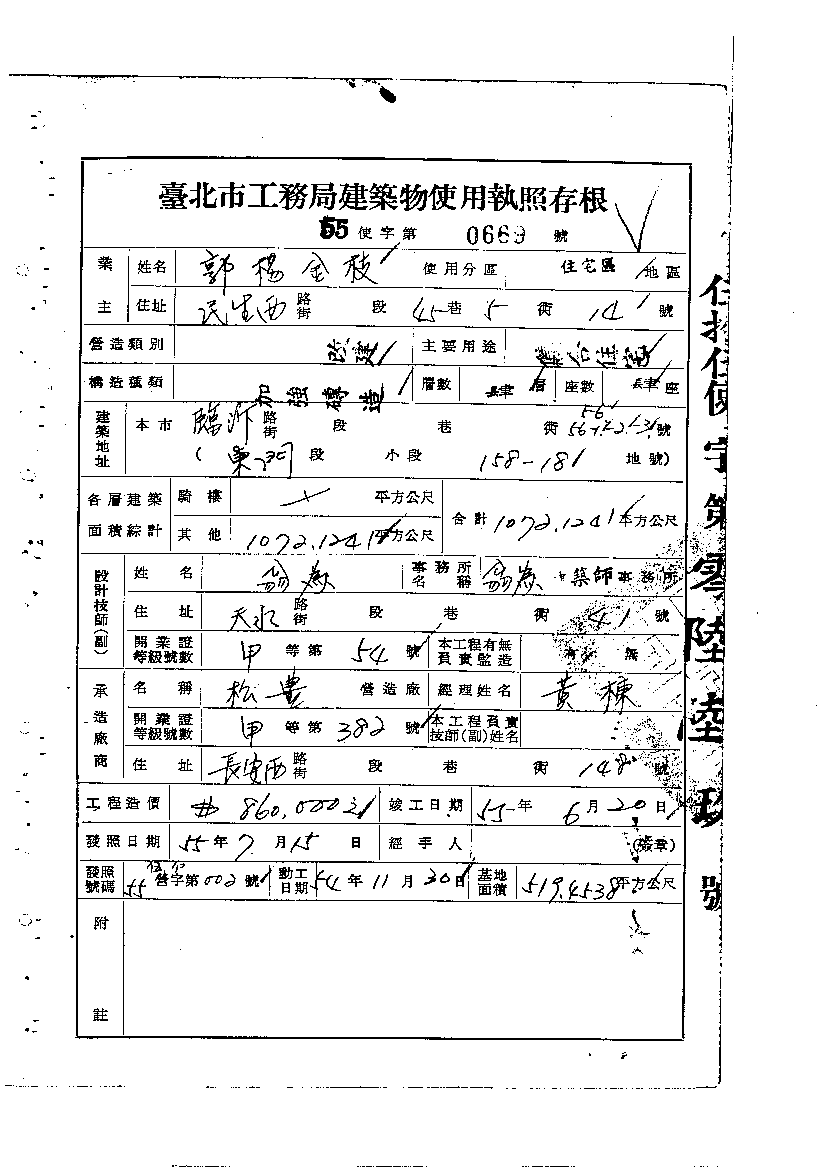 臺北市工務局建築物使用執照存根
55 使字第 0669 號
業主 姓名 郭楊金枝 使用分區 住宅區 地區
住址 民生西 路街 段 45 巷 5 衖 14 號
營造類別 改建 主要用途 集合住宅
構造種類 加強磚造 層數 層 座數 座
建築地址 本市 臨沂 路街 段 巷 衖 號
( 東門 段 小段 158-181 地號)
各層建築面積綜計 騎樓 平方公尺 合計 1072.1241 平方公尺
其他 1072.1241 平方公尺
設計技師(副) 姓名 事務所名稱 築師事務所
住址 天水 路街 段 巷 衖 41 號
開業證等級號數 甲 等第 54 號 本工程有無負責監造 有 無
承造廠商 名稱 松豊 營造廠 經理姓名 黃棟
開業證等級號數 甲 等第 382 號 本工程負責技師(副)姓名
住址 長安西 路街 段 巷 衖 148 號
工程造價 860,000 竣工日期 55 年 6 月 20 日
發照日期 55 年 7 月 15 日 經手人 (簽章)
發照號碼 55 營字第 002 號 動工日期 54 年 11 月 30 日 基地面積 519.4538 平方公尺
附註
使字第零陸陸玖號